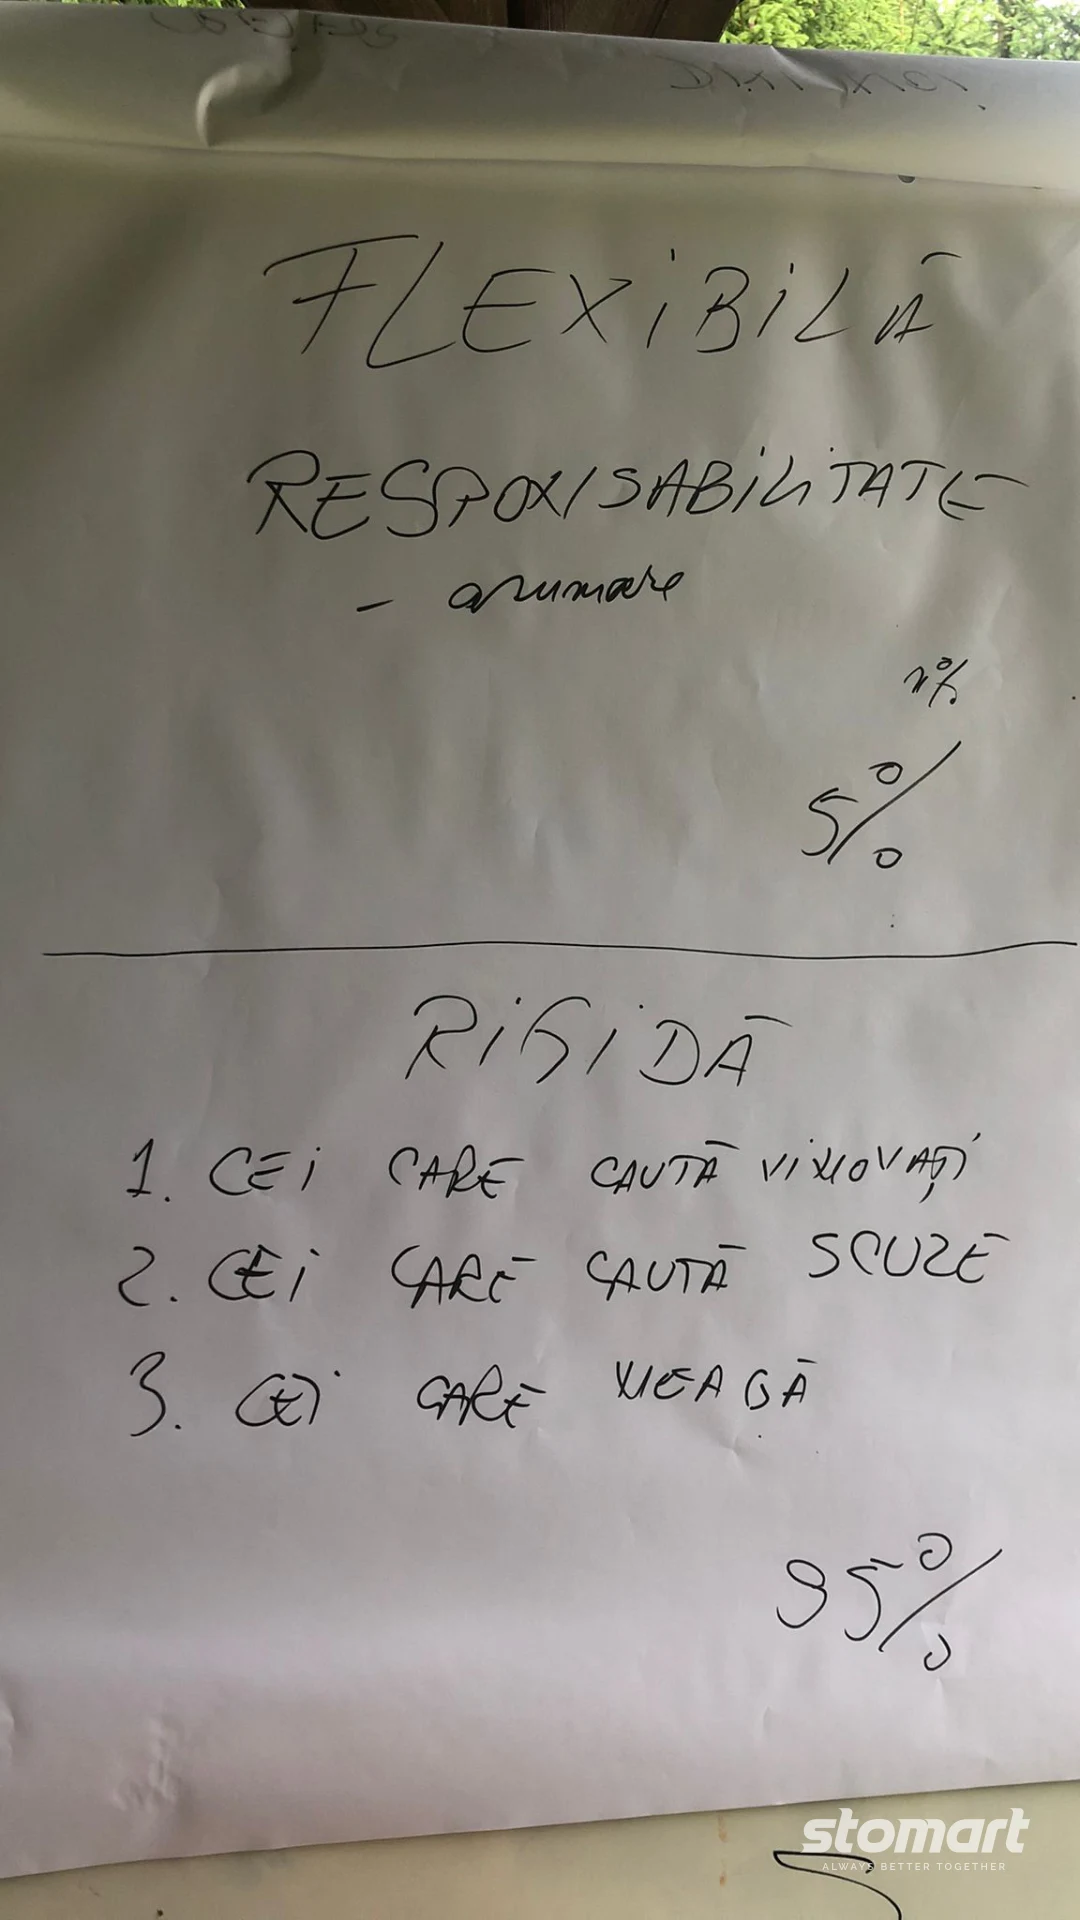 FLEXIBILĂ
RESPONSABILITATE
- asumare
5%
RIGIDĂ
1. CEI CARE CAUTĂ VINOVAȚI
2. CEI CARE CAUTĂ SCUZE
3. CEI CARE NEAGĂ
95%
stomart
ALWAYS BETTER TOGETHER